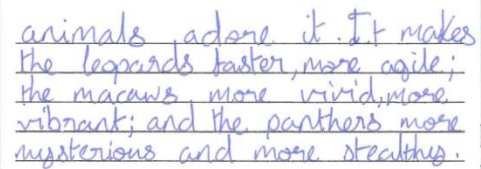 animals adore it. It makes
the leopards faster, more agile;
the macaws more vivid, more
vibrant; and the panthers more
mysterious and more stealthy.